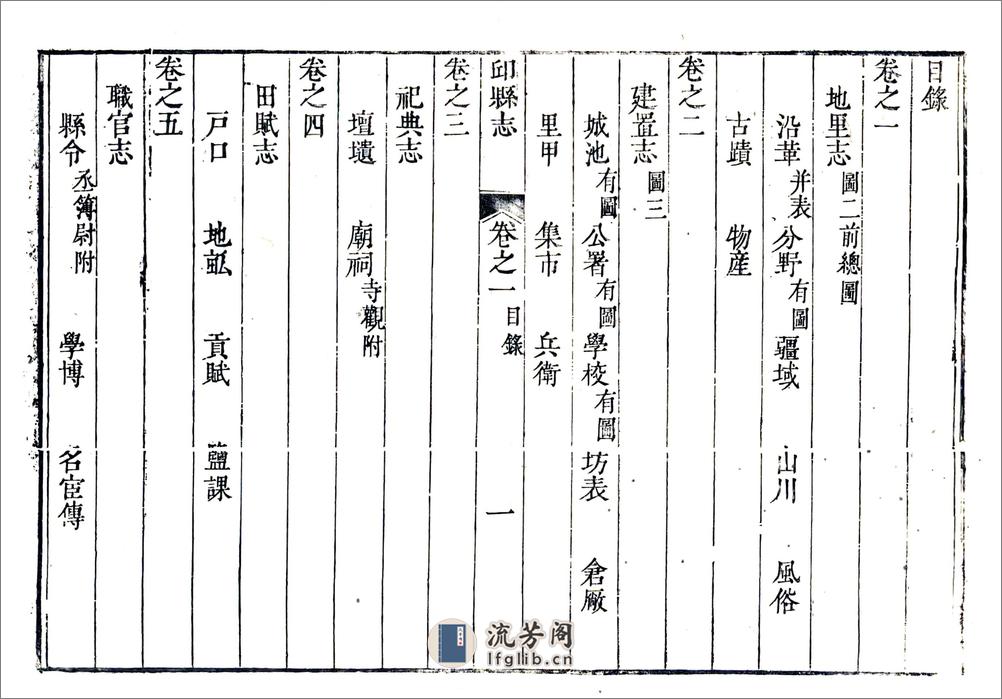 目錄
卷之一
地里志 圖二前總圖
沿革 并表 分野 有圖 疆域 山川 風俗
古蹟 物産
卷之二
建置志 圖三
城池 有圖 公署 有圖 學校 有圖 坊表 倉厰
里甲 集市 兵衛
邱縣志 卷之一 目錄 一
卷之三
祀典志
壇壝 廟祠 寺觀附
卷之四
田賦志
戸口 地畆 貢賦 鹽課
卷之五
職官志
縣令 丞簿尉附 學博 名宦傳
流芳阁
lfglib.cn